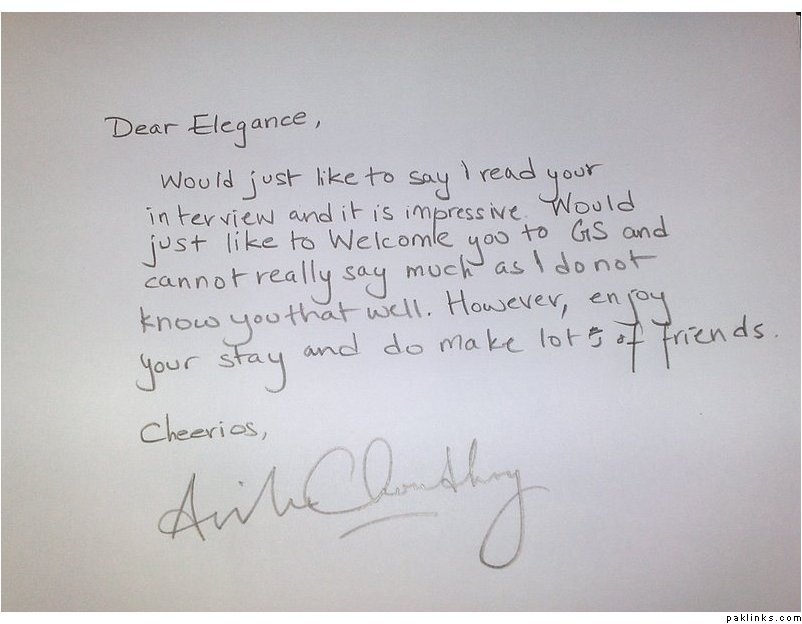 Dear Elegance,
Would just like to say I read your
interview and it is impressive. Would
just like to Welcome you to GS and
cannot really say much as I do not
know you that well. However, enjoy
your stay and do make lots of friends.
Cheerios,
paklinks.com